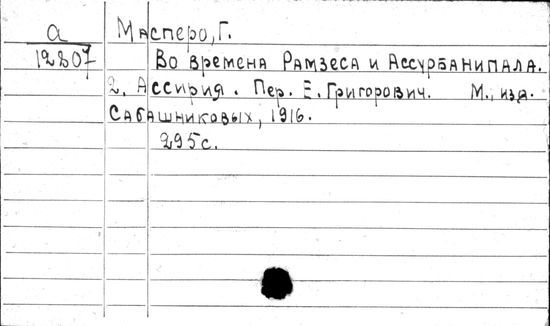 а
12807
Масперо, Г.
Во времена Рамзеса и Ассурбанипала.
2. Ассирия. Пер. Е. Григорович. М., изд.
Сабашниковых, 1916.
295 с.